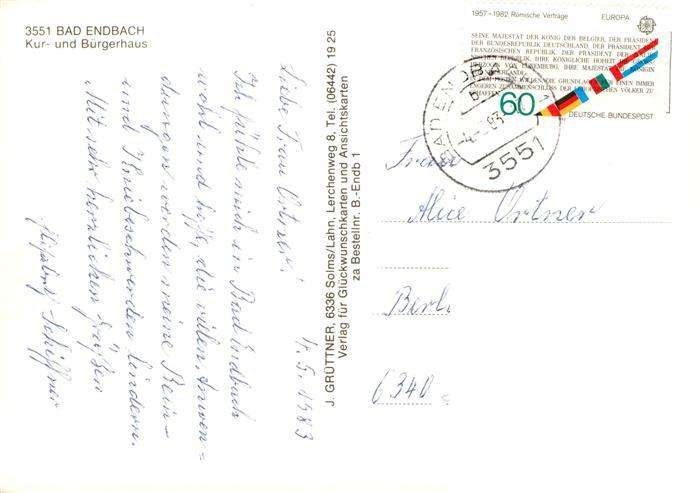 3551 BAD ENDBACH
Kur- und Bürgerhaus
4.5.1983
Liebe Frau Ortner!
Ich fühle mich in Bad Endbach
wohl und hoffe, die vielen Anwen=
dungen werden meine Bein-
und Kniebeschwerden lindern.
Mit sehr herzlichen Grüßen
Schiffner
J. GRÜTTNER, 6336 Solms/Lahn, Lerchenweg 8, Tel. (06442) 19 25
Verlag für Glückwunschkarten und Ansichtskarten
za Bestellnr. B.-Endb 1
1957–1982 Römische Verträge EUROPA
SEINE MAJESTÄT DER KÖNIG DER BELGIER, DER PRÄSIDENT
DER BUNDESREPUBLIK DEUTSCHLAND, DER PRÄSIDENT DER
FRANZÖSISCHEN REPUBLIK, DER PRÄSIDENT DER
REPUBLIK, IHRE KÖNIGLICHE HOHEIT
HERZOGIN VON LUXEMBURG, IHRE MAJESTÄT KÖNIGIN
NIEDERLANDE,
GRUNDLAGEN EINEN IMMER
ENGEREN ZUSAMMENSCHLUSS DER EUROPÄISCHEN VÖLKER ZU
SCHAFFEN
60
DEUTSCHE BUNDESPOST
BAD ENDB
83
3551
Frau
Alice Ortner
Berl
6340